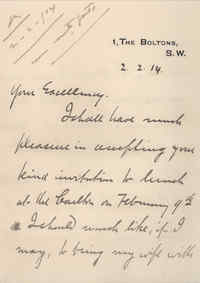 1, The Boltons,
S.W.
2.2.14.
Your Excellency.
I shall have much
pleasure in accepting your
kind invitation to lunch
at the Castle on February 9th
I should much like, if I
may, to bring my wife with